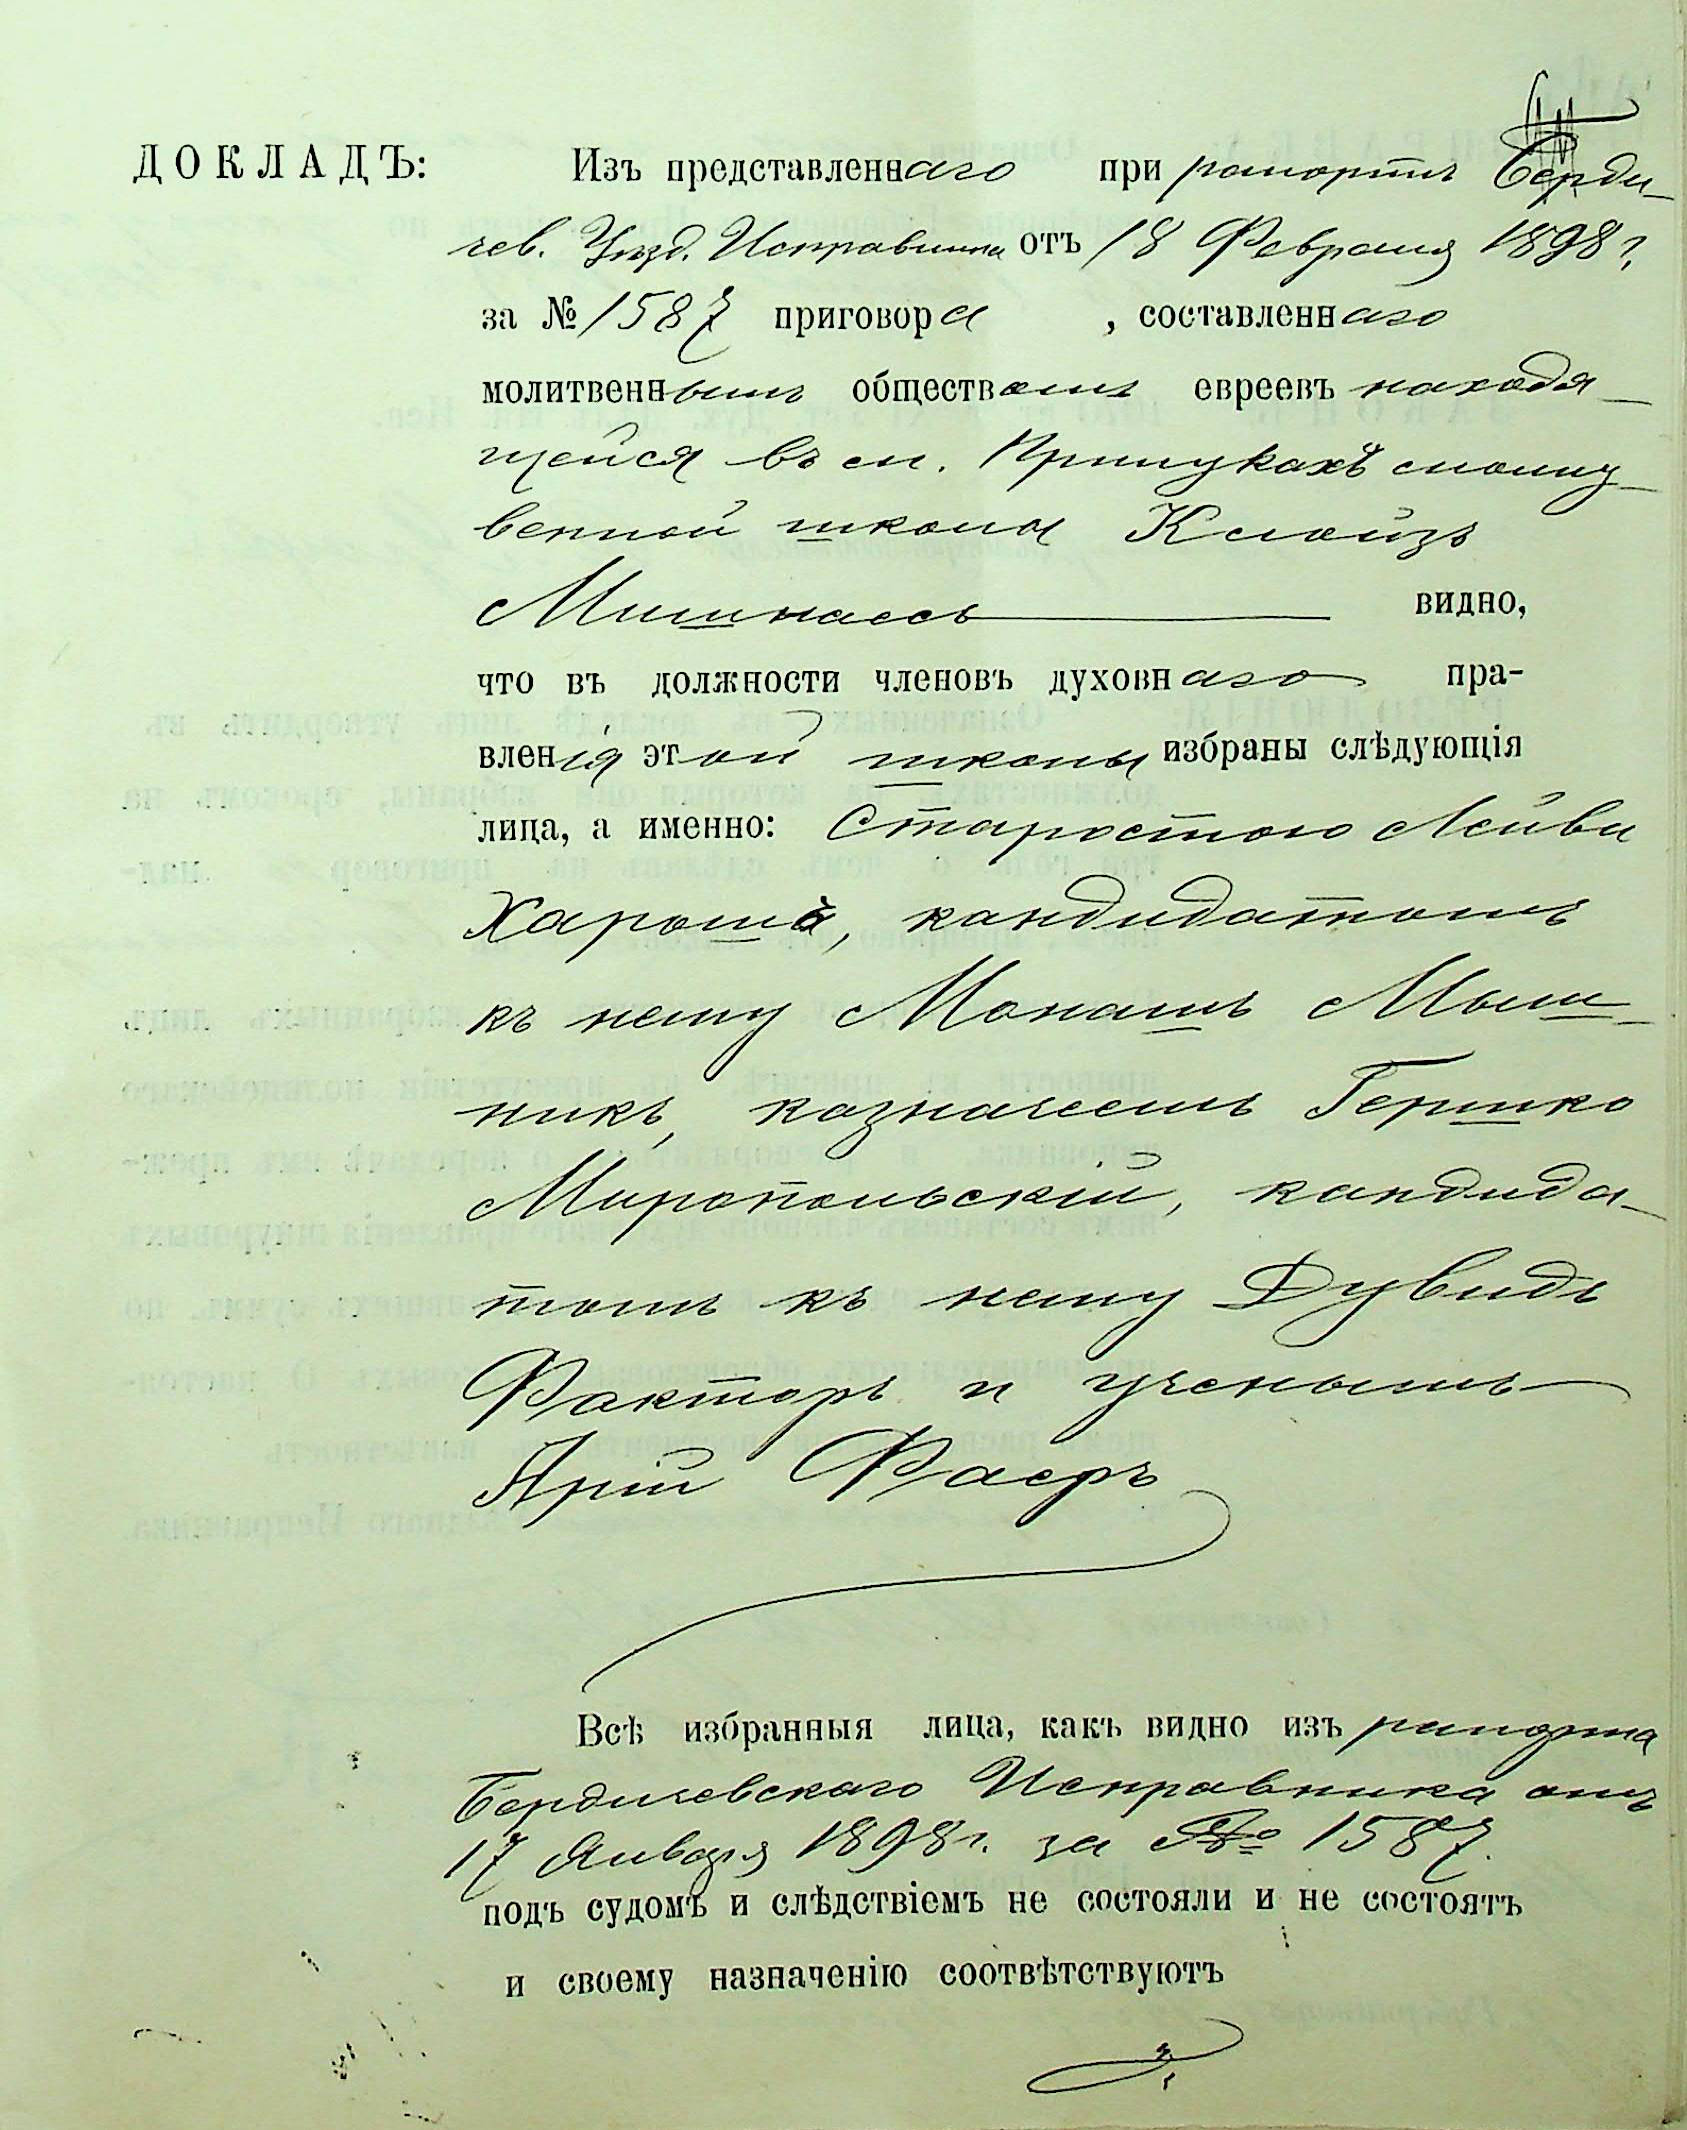 ДОКЛАДЪ: Изъ представленнаго при рапортѣ Берди-
чев. Уѣзд. Исправника отъ 18 Февраля 1898 г.
за № 1587 приговора, составленнаго
молитвеннымъ обществомъ евреевъ находя-
щейся въ м. Прилукахъ
венной школы Клойзъ
Мишнаесъ видно,
что въ должности членовъ духовнаго пра-
вленія этой школы избраны слѣдующія
лица, а именно: Старостою Лейви
Харошъ, кандидатомъ
къ нему Монашъ Мыш-
никъ, казначеемъ Гершко
Миропольскій, кандида-
томъ къ нему Дувидъ
Факторъ и ученымъ
Арій Фаеръ
Всѣ избранныя лица, какъ видно изъ рапорта
Бердичевскаго Исправника отъ
17 Января 1898 г. за № 1587
подъ судомъ и слѣдствіемъ не состояли и не состоятъ
и своему назначенію соотвѣтствуютъ